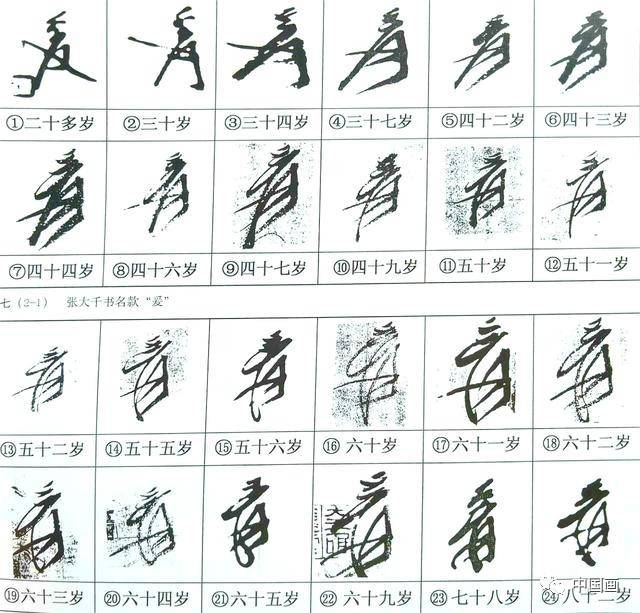 ①二十多岁 ②三十岁 ③三十四岁 ④三十七岁 ⑤四十二岁 ⑥四十三岁
⑦四十四岁 ⑧四十六岁 ⑨四十七岁 ⑩四十九岁 ⑪五十岁 ⑫五十一岁
七（2-1） 张大千书名款“爰”
⑬五十二岁 ⑭五十五岁 ⑮五十六岁 ⑯六十岁 ⑰六十一岁 ⑱六十二岁
⑲六十三岁 ⑳六十四岁 ㉑六十五岁 ㉒六十九岁 ㉓七十八岁 ㉔八十二岁
中国画